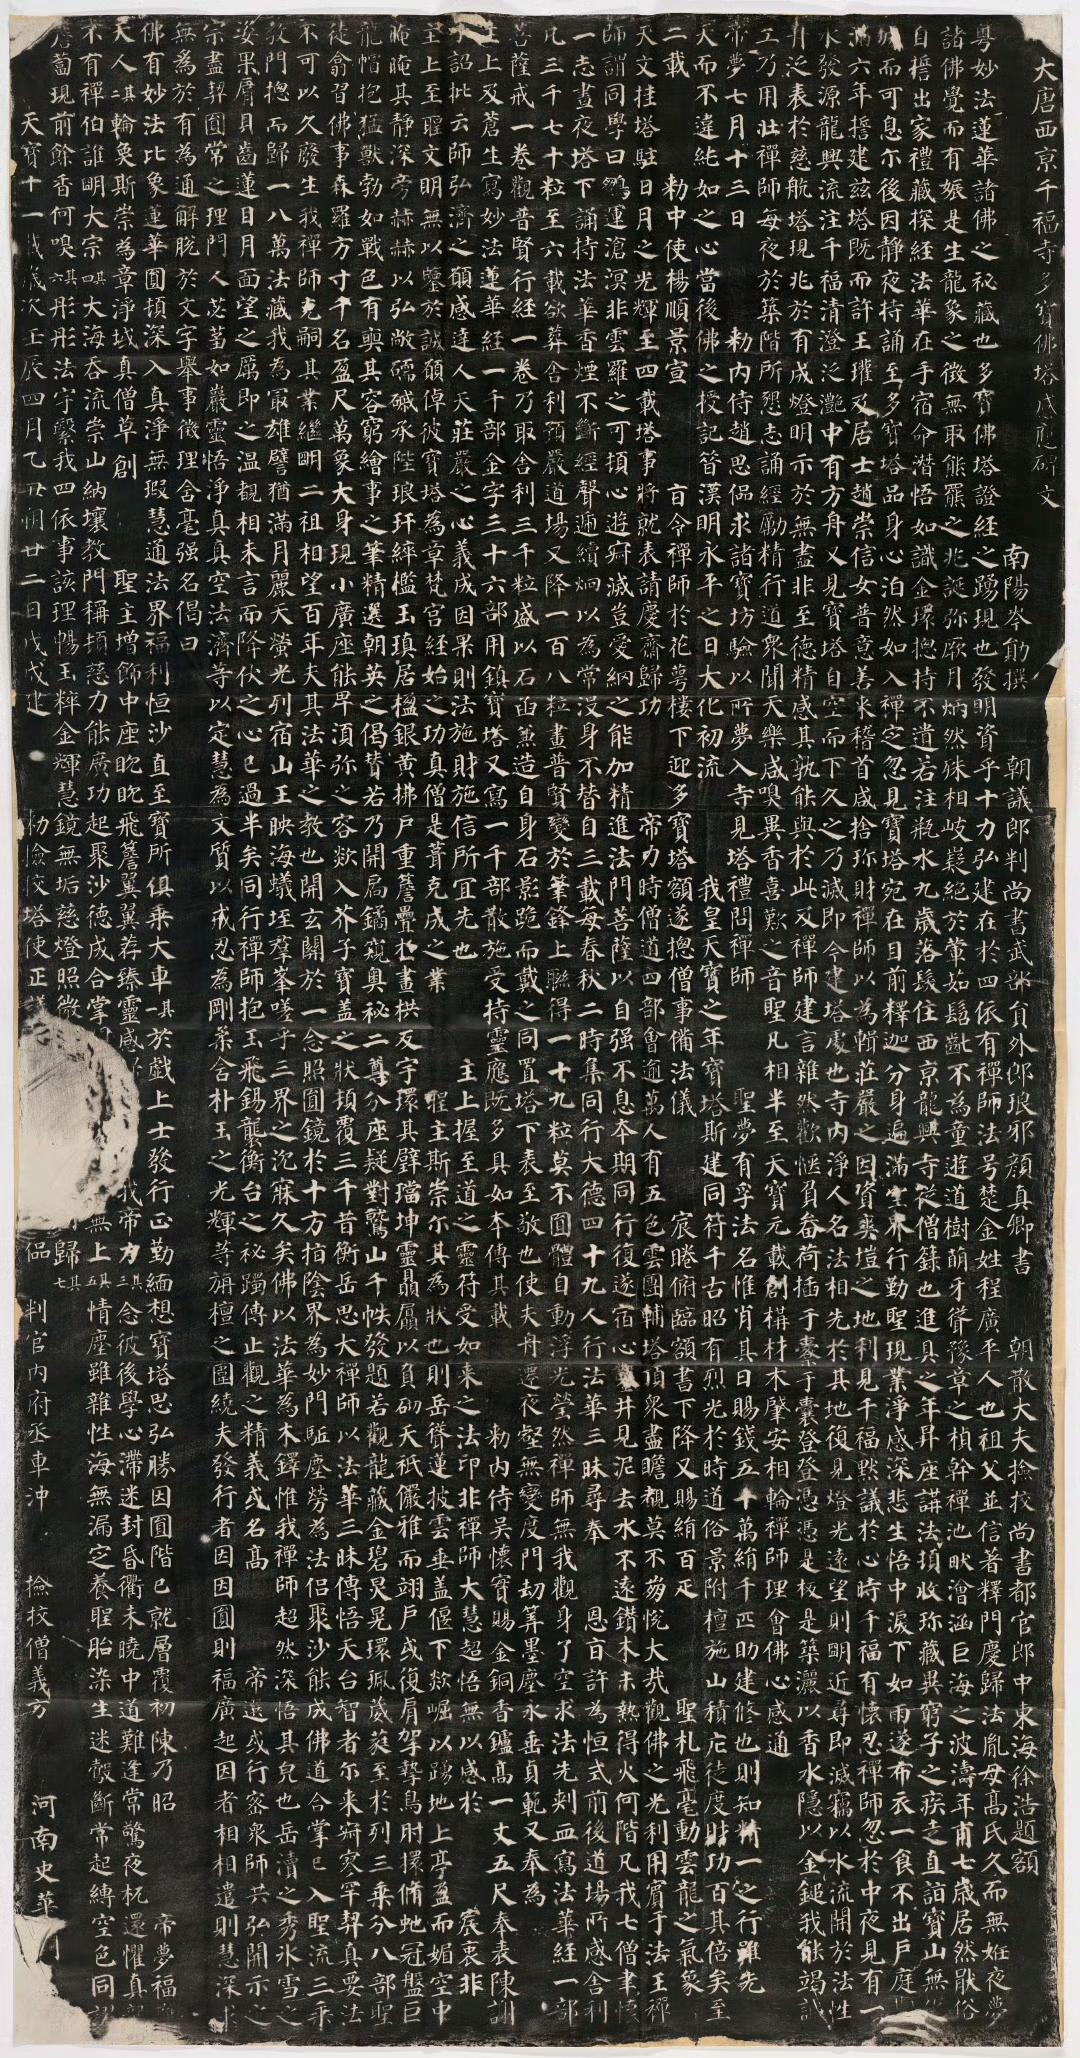 大唐西京千福寺多寶佛塔感應碑文 南陽岑勛撰 朝議郎判尚書武部員外郎琅邪顏真卿書 朝散大夫撿挍尚書都官郎中東海徐浩題額
粵妙法蓮華諸佛之祕藏也多寶佛塔證經之踴現也發明資乎十力弘建在於四依有禪師法号楚金姓程廣平人也祖父並信著釋門慶歸法胤母高氏久而無姙夜夢
諸佛覺而有娠是生龍象之徵無取熊羆之兆誕弥厥月炳然殊相岐嶷絕於葷茹髫齔不為童遊道樹萌牙聳豫章之楨幹禪池畎澮涵巨海之波濤年甫七歲居然猒俗
自誓出家禮藏探經法華在手宿命潛悟如識金環揔持不遺若注瓶水九歲落髮住西京龍興寺從僧籙也進具之年昇座講法頓收珍藏異窮子之疾走直詣寶山無
城而可息尒後因静夜持誦至多寶塔品身心泊然如入禪定忽見寶塔宛在目前釋迦分身遍滿空界行勤聖現業淨感深悲生悟中淚下如雨遂布衣一食不出戶庭
滿六年誓建兹塔既而許王瓘及居士趙崇信女普意善來稽首咸捨珎財禪師以為輯莊嚴之因資爽塏之地利見千福默議於心時千福有懷忍禪師忽於中夜見有一
水發源龍興流注千福清澄泛灩中有方舟又見寶塔自空而下久之乃滅即今建塔處也寺内淨人名法相先於其地復見燈光遠望則明近尋即滅竊以水流開於法性
舟泛表於慈航塔現兆於有成燈明示於無盡非至德精感其孰能與於此及禪師建言雜然歡愜負畚荷插于橐于囊登登憑憑是板是築灑以香水隱以金鎚我能竭誠
工乃用壯禪師每夜於築階所懇志誦經勵精行道衆聞天樂咸嗅異香喜歎之音聖凡相半至天寶元載創構材木肇安相輪禪師理會佛心感通
帝夢七月十三日 敕内侍趙思偘求諸寶坊驗以所夢入寺見塔禮問禪師 聖夢有孚法名惟肖其日賜錢五十萬絹千匹助建修也則知精一之行雖先
天而不違純如之心當後佛之授記昔漢明永平之日大化初流 我皇天寶之年寶塔斯建同符千古昭有烈光於時道俗景附檀施山積庀徒度財功百其倍矣至
二載 敕中使楊順景宣 旨令禪師於花萼樓下迎多寶塔額遂揔僧事備法儀 宸睠俯臨額書下降又賜絹百疋 聖札飛毫動雲龍之氣象
天文挂塔駐日月之光輝至四載塔事將就表請慶齋歸功 帝力時僧道四部會逾萬人有五色雲團輔塔頂衆盡瞻覩莫不崩悅大㢤觀佛之光利用賓于法王禪
師謂同學曰鵬運滄溟非雲羅之可頓心遊寂滅豈愛網之能加精進法門菩薩以自强不息夲期同行復遂宿心鑿井見泥去水不遠鑽木未熱得火何階凡我七僧聿懷
一志晝夜塔下誦持法華香煙不斷經聲遞續炯以為常沒身不替自三載每春秋二時集同行大德四十九人行法華三昧尋奉 恩旨許為恒式前後道場所感舍利
凡三千七十粒至六載欲葬舍利預嚴道場又降一百八粒畫普賢變於筆鋒上聯得一十九粒莫不圓體自動浮光瑩然禪師無我觀身了空求法先刺血寫法華經一部
菩薩戒一卷觀普賢行經一卷乃取舍利三千粒盛以石函兼造自身石影跪而戴之同置塔下表至敬也使夫舟遷夜壑無變度門劫筭墨塵永垂貞範又奉為
主上及蒼生寫妙法蓮華經一千部金字三十六部用鎮寶塔又寫一千部散施受持靈應既多具如本傳其載 敕内侍吳懷實賜金銅香鑪高一丈五尺奉表陳謝
手詔批云師弘濟之願感達人天莊嚴之心義成因果則法施財施信所宜先也 主上握至道之靈符受如來之法印非禪師大慧超悟無以感於 宸衷非
主上至聖文明無以鑒於誠願倬彼寶塔為章梵宮經始之功真僧是葺克成之業 聖主斯崇尒其為狀也則岳聳蓮披雲垂盖偃下欻崛以踴地上亭盈而媚空中
晻晻其靜深旁赫赫以弘敞礝磩承陛琅玕綷檻玉瑱居楹銀黃拂戶重簷疊於畫栱反宇環其璧璫坤靈贔屭以負砌天祇儼雅而翊戶或復肩挐摯鳥肘擐脩虵冠盤巨
龍帽抱猛獸勃如戰色有奭其容窮繪事之筆精選朝英之偈贊若乃開扃鐍窺奧祕二尊分座疑對鷲山千帙發題若觀龍藏金碧炅晃環珮葳蕤至於列三乘分八部聖
徒翕習佛事森羅方寸千名盈尺萬象大身現小廣座能卑須弥之容欻入芥子寶盖之狀頓覆三千昔衡岳思大禪師以法華三昧傳悟天台智者尒来寂寥罕契真要法
不可以久廢生我禪師克嗣其業繼明二祖相望百年夫其法華之教也開玄關於一念照圓鏡於十方指陰界為妙門駈塵勞為法侶聚沙能成佛道合掌已入聖流三乘
教門揔而歸一八萬法藏我為最雄譬猶滿月麗天螢光列宿山王映海蟻垤羣峯嗟乎三界之沉寐久矣佛以法華為木鐸惟我禪師超然深悟其皃也岳瀆之秀冰雪之
姿果脣貝齒蓮目月面望之厲即之溫覩相未言而降伏之心已過半矣同行禪師抱玉飛錫襲衡台之祕躅傳止觀之精義或名高 帝選或行密衆師共弘開示之
宗盡契圓常之理門人苾蒭如巖靈悟淨真真空法濟等以定慧為文質以戒忍為剛柔含朴玉之光輝等旃檀之圍繞夫發行者因因圓則福廣起因者相相遣則慧深求
無為於有為通解脫於文字舉事徵理含毫强名偈曰
佛有妙法比象蓮華圓頓深入真淨無瑕慧通法界福利恒沙直至寶所俱乘大車其一於戲上士發行正勤緬想寶塔思弘勝因圓階已就層覆初陳乃昭 帝夢福
天人其二輪奐斯崇為章淨域真僧草創 聖主增飾中座眈眈飛簷翼翼荐臻靈感 我帝力其三念彼後學心滯迷封昏衢未曉中道難逢常驚夜杌還懼真
不有禪伯誰明大宗其四大海吞流崇山納壤教門稱頓慈力能廣功起聚沙德成合掌 無上其五情塵雖雜性海無漏定養聖胎染生迷鷇斷常起縛空色同謬
薝蔔現前餘香何嗅其六彤彤法宇繄我四依事該理暢玉粹金輝慧鏡無垢慈燈照微 歸其七
天寶十一載歲次壬辰四月乙丑朔廿二日戊戌建 敕撿挍塔使正議 偘 判官内府丞車沖 撿挍僧義方 河南史華